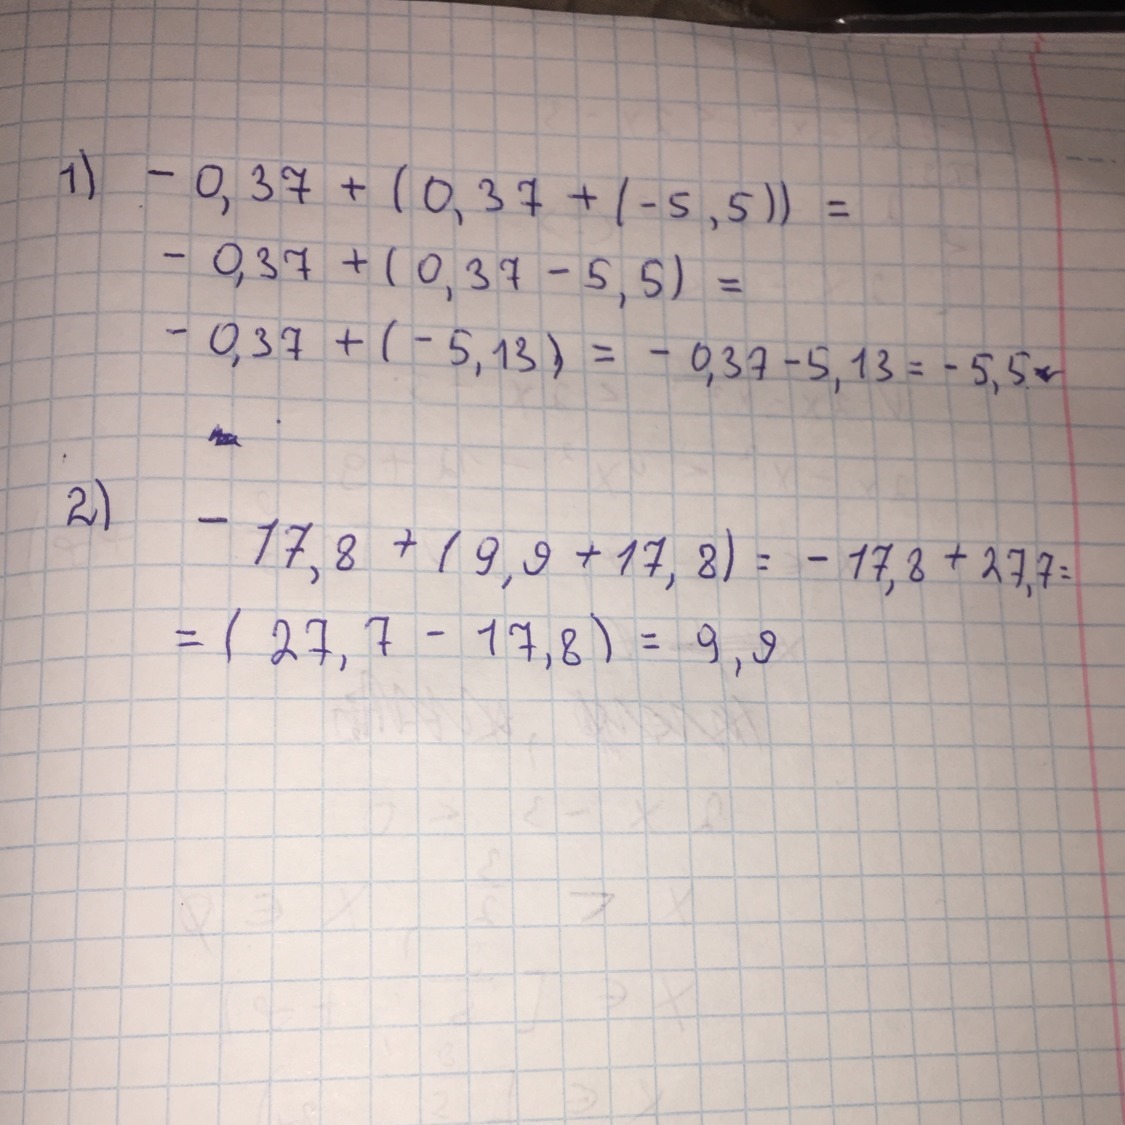 1) - 0,37 + (0,37 + (-5,5)) =
- 0,37 + (0,37 - 5,5) =
- 0,37 + (-5,13) = - 0,37 - 5,13 = - 5,5
2) - 17,8 + (9,9 + 17,8) = - 17,8 + 27,7 =
= (27,7 - 17,8) = 9,9